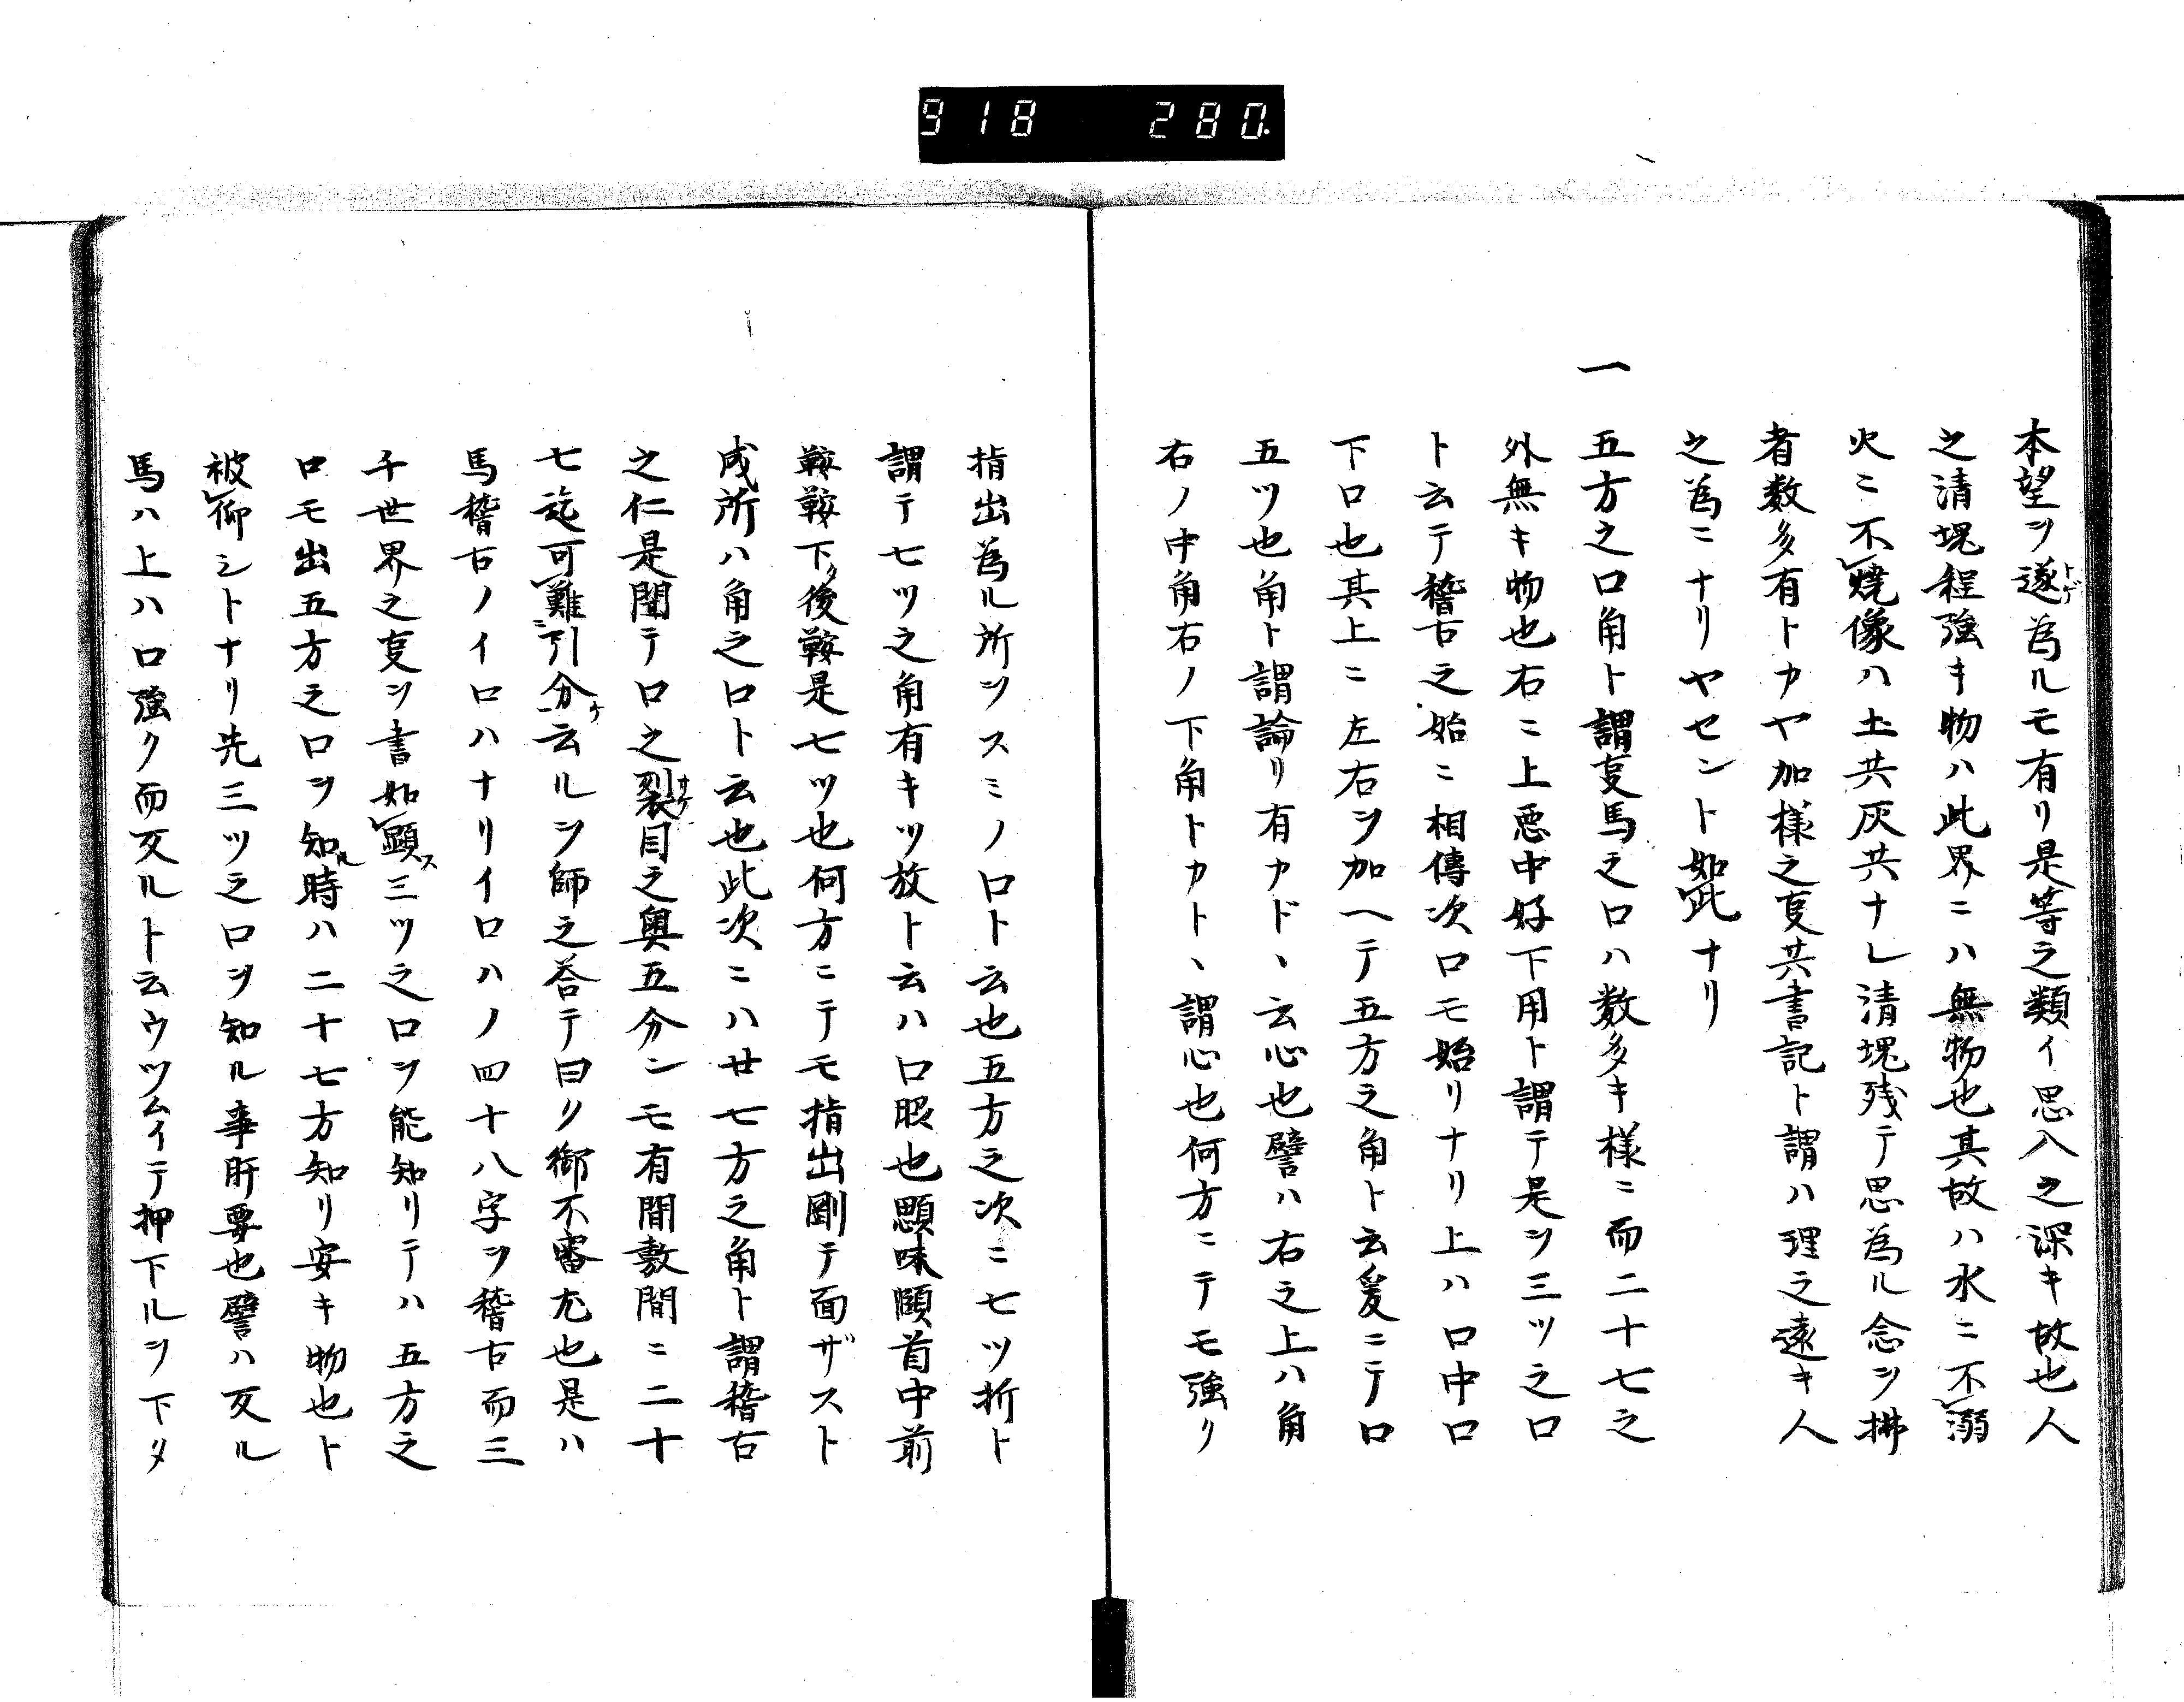 918 280.
本望ヲ遂為ルモ有リ是等之類イ思入之深キ故也人
之清塊程強キ物ハ此界ニハ無物也其故ハ水ニ不溺
火ニ不焼像ハ土共灰共ナレ清塊残テ思為ル念ヲ拂
者数多有トカヤ加様之㕝共書記ト謂ハ理之遠キ人
之為ニナリヤセント如此ナリ
一五方之口角ト謂㕝馬之口ハ数多キ様ニ而二十七之
外無キ物也右ニ上悪中好下用ト謂テ是ヲ三ツ之口
ト云テ稽古之始ニ相傳次口モ始リナリ上ハ口中口
下口也其上ニ左右ヲ加ヘテ五方之角ト云爰ニテ口
五ツ也角ト謂論リ有カド、云心也譬ハ右之上ハ角
右ノ中角右ノ下角トカト、謂心也何方ニテモ強リ
指出為ル所ヲスミノ口ト云也五方之次ニ七ツ折ト
謂テ七ツ之角有キツ放ト云ハ口眼也顋味頤首中前
鞍鞍下タ後鞍是七ツ也何方ニテモ指出剛テ面ザスト
成所ハ角之口ト云也此次ニハ廿七方之角ト謂稽古
之仁是聞テ口之裂目之奥五分ンモ有間敷間ニ二十
七迄可難引分云ルヲ師之答テ曰ク御不審尤也是ハ
馬稽古ノイロハナリイロハノ四十八字ヲ稽古而三
千世界之㕝ヲ書如顕ス三ツ之口ヲ能知リテハ五方之
口モ出五方之口ヲ知ル時ハ二十七方知リ安キ物也ト
被仰シトナリ先三ツ之口ヲ知ル事肝要也譬ハ反ル
馬ハ上ハ口強ク而反ルト云ウツムイテ押下ルヲ下タ